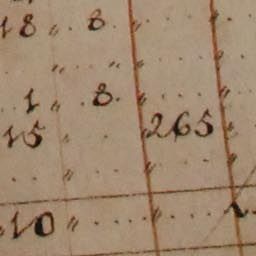 18 〃 8. 〃 . . . 〃
. . 〃 . . 〃 . . . 〃
. . 1 〃 . 8. 〃 . . . 〃
15 〃 . . 〃 265 〃
. . . 〃 . . . 〃 . . . 〃
10 〃 . . . . 〃 . . . .